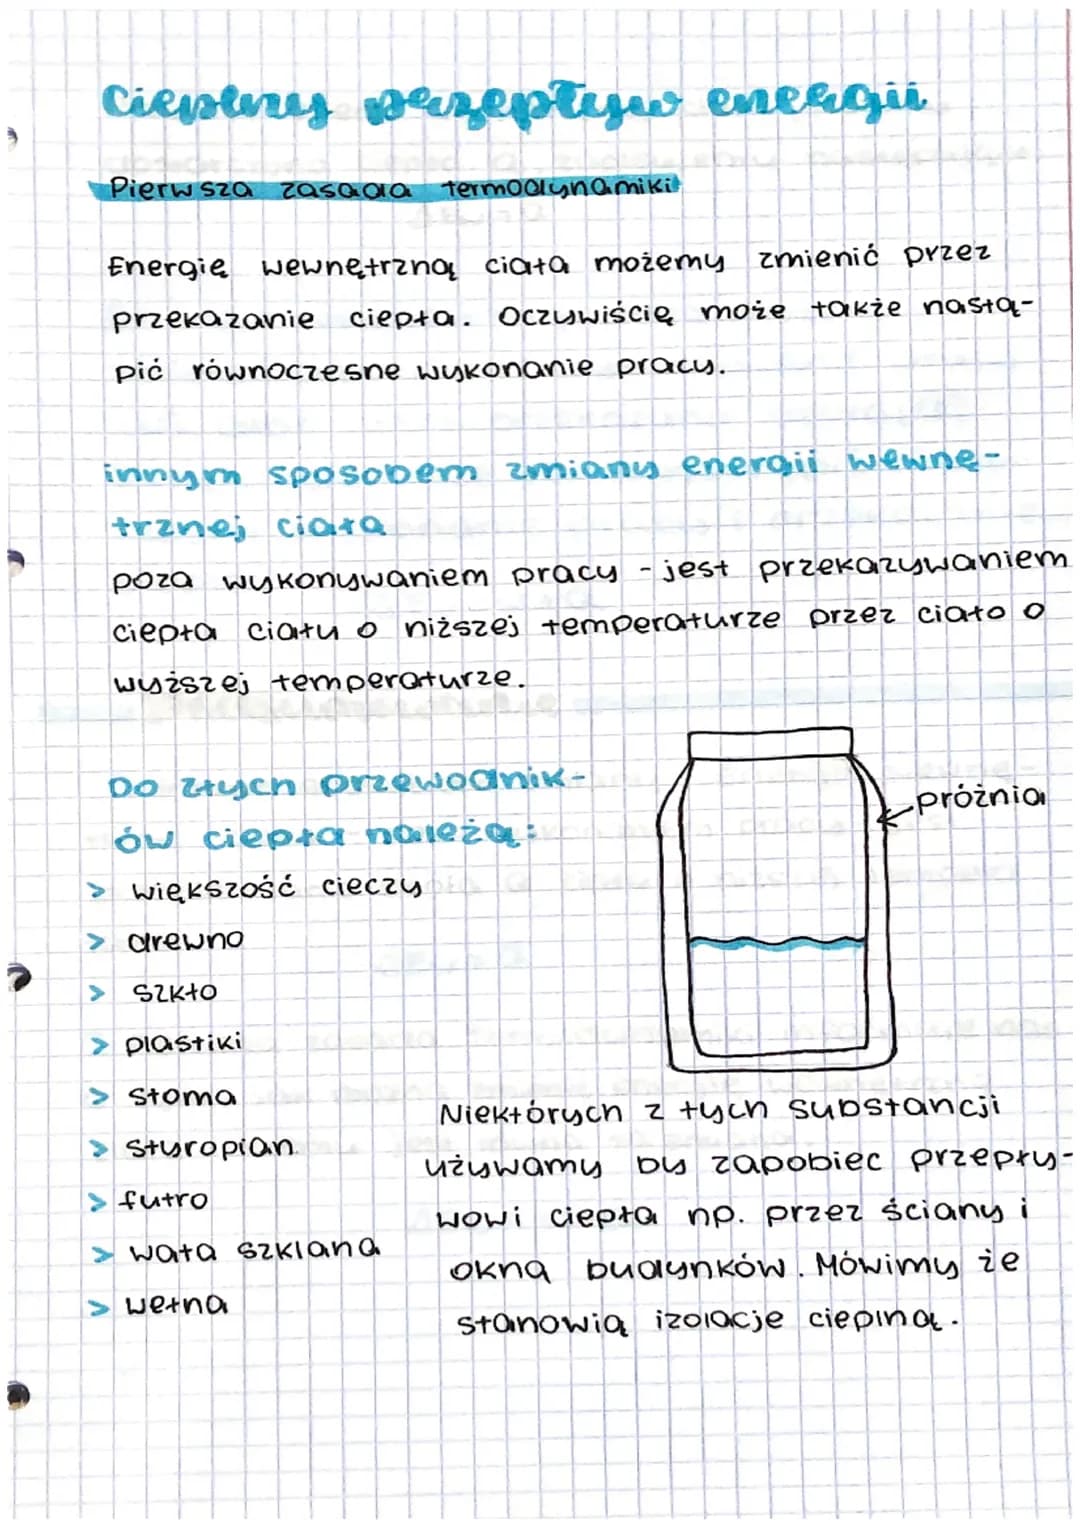 Cieplny przepływ energii
Pierwsza zasada termodynamiki
Energię wewnętrzną ciała możemy zmienić przez
przekazanie ciepła. Oczywiścię może także nastą-
pić równoczesne wykonanie pracy.
innym sposobem zmiany energii wewnę-
trznej ciała
poza wykonywaniem pracy - jest przekazywaniem
ciepła ciału o niższej temperaturze przez ciało o
wyższej temperaturze.
Do złych przewodnik-
ów ciepła należą:
> większość cieczy
> drewno
> szkło
> plastiki
> słoma
> styropian
> futro
> wata szklana
> wełna
próżnia
Niektórych z tych substancji
używamy by zapobiec przepły-
wowi ciepła np. przez ściany i
okna budynków. Mówimy że
stanowią izolacje cieplną.